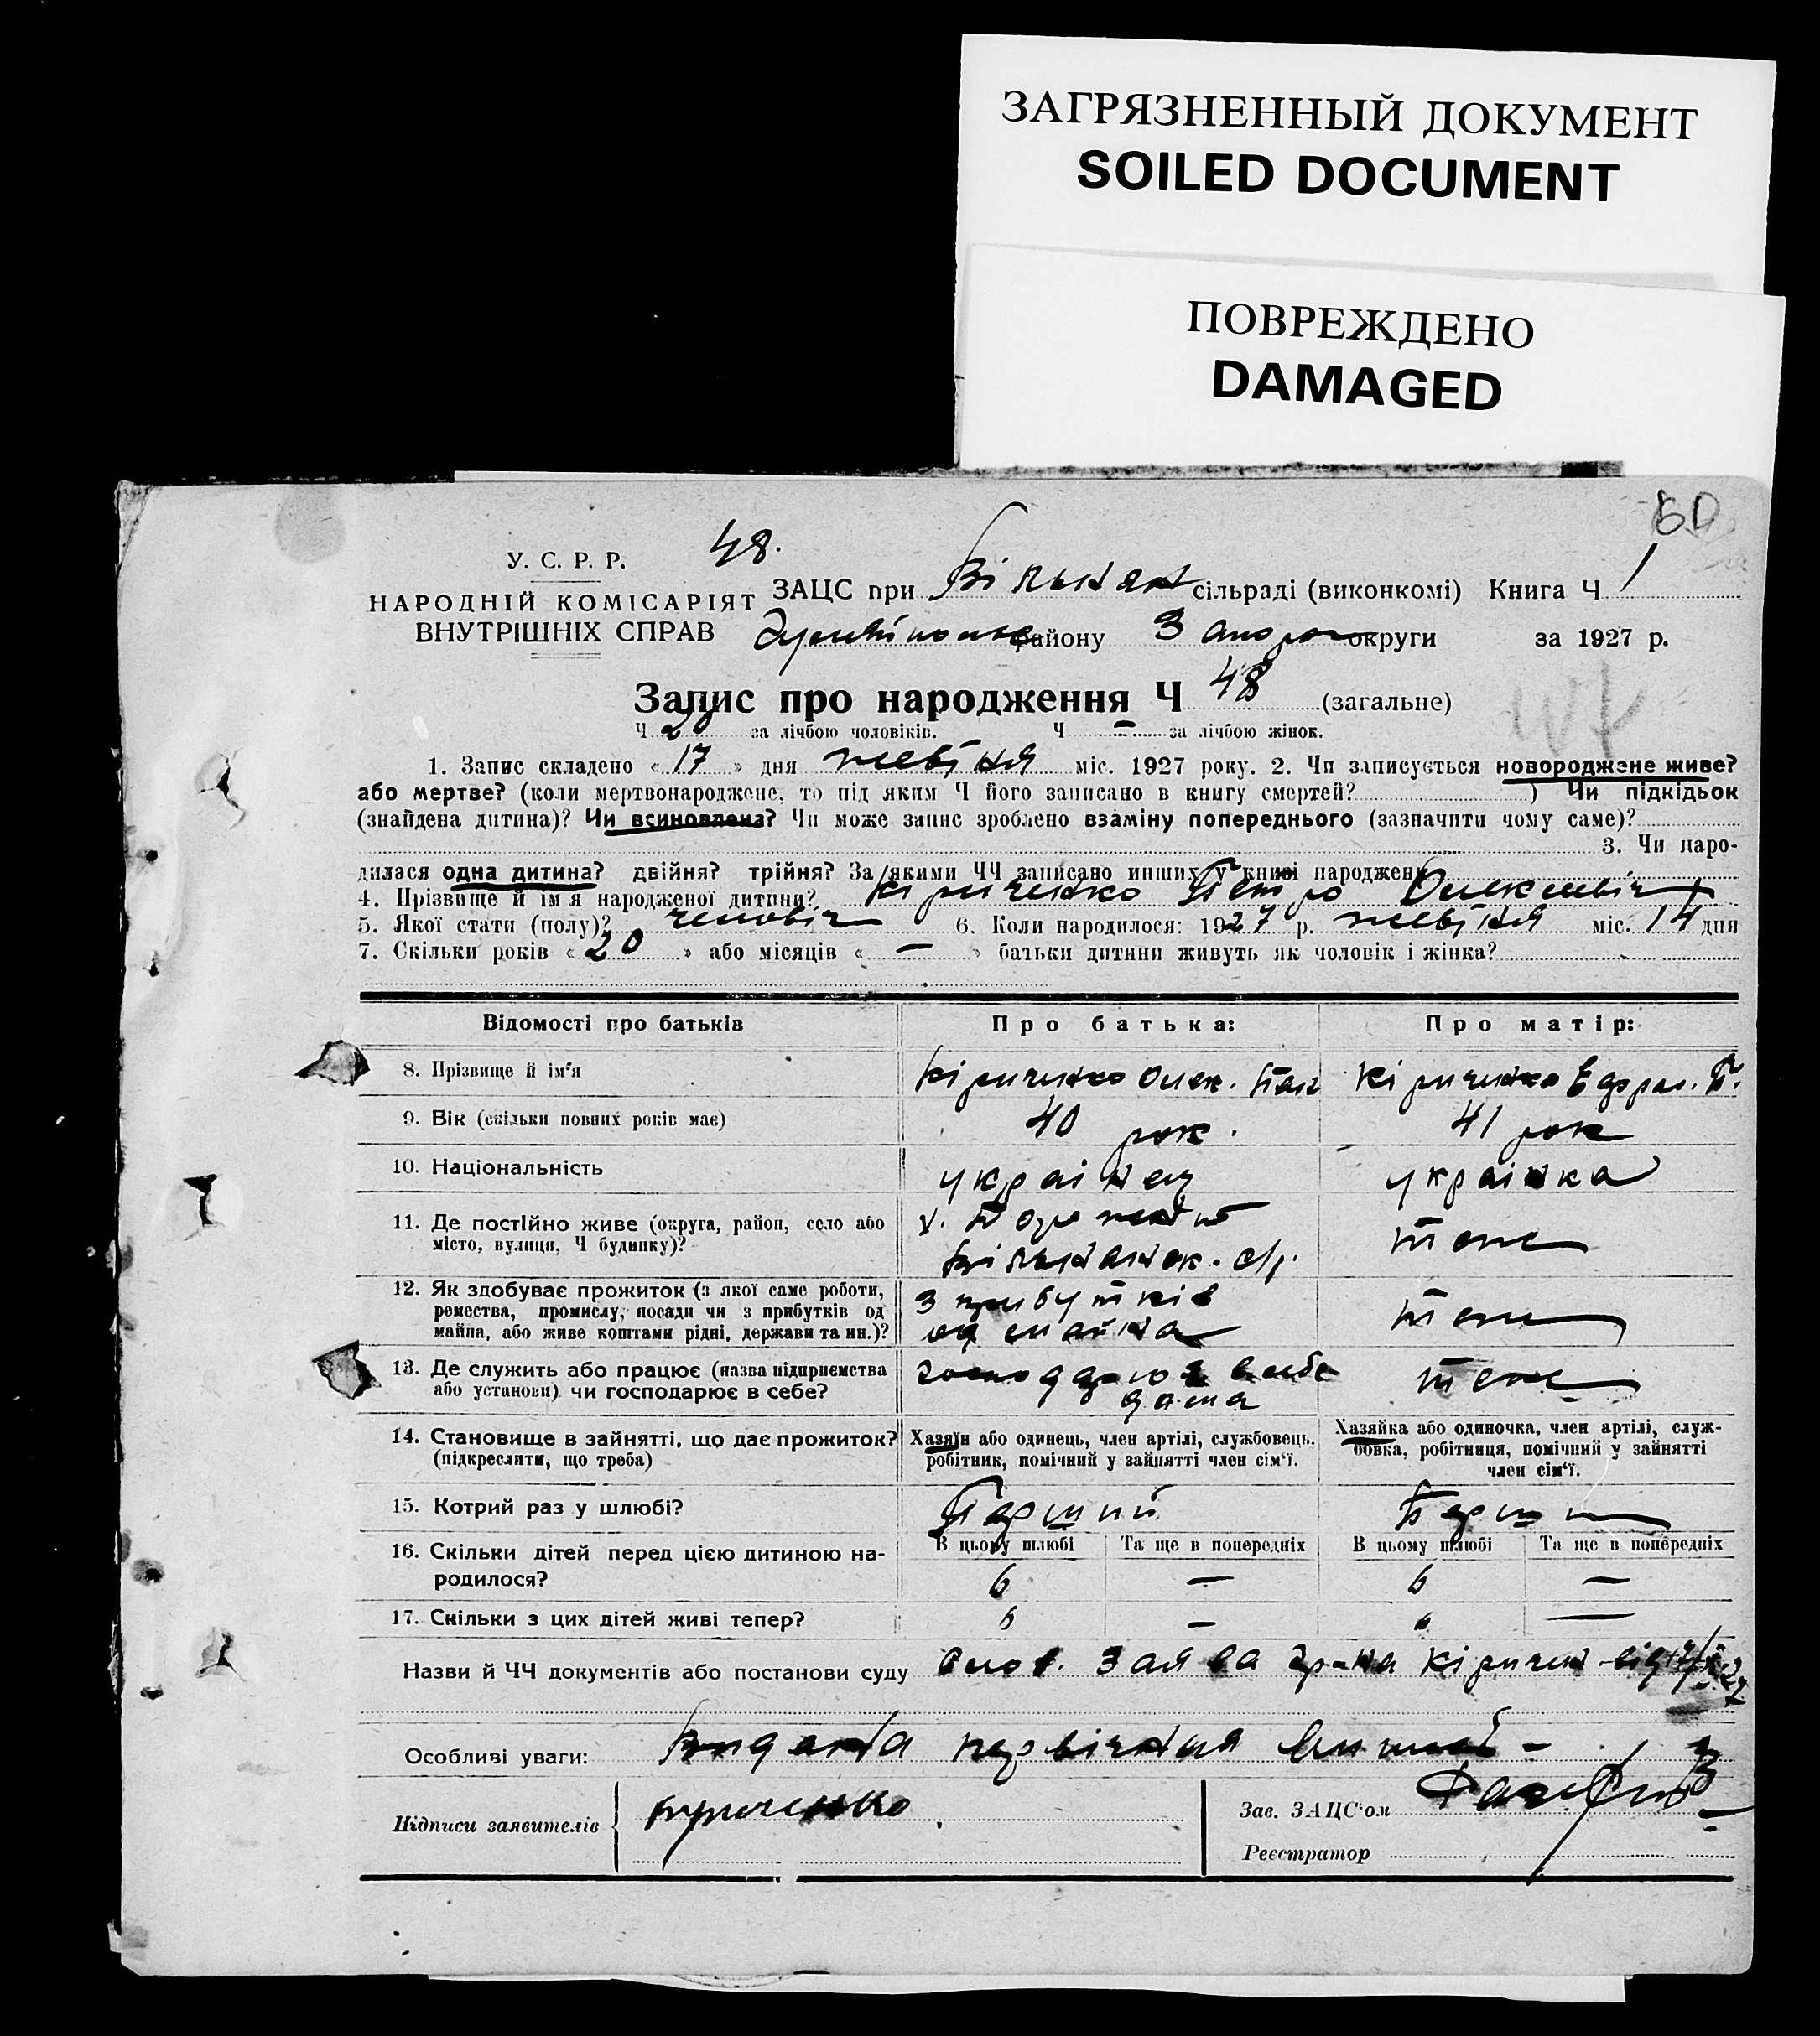 ЗАГРЯЗНЕННЫЙ ДОКУМЕНТ
SOILED DOCUMENT
ПОВРЕЖДЕНО
DAMAGED
60
У. С. Р. Р. 48.
НАРОДНІЙ КОМІСАРІЯТ
ВНУТРІШНІХ СПРАВ
ЗАЦС при сільраді (виконкомі) Книга Ч 1
району округи за 1927 р.
Запис про народження Ч 48 (загальне)
Ч 20 за лічбою чоловіків. Ч — за лічбою жінок.
1. Запис складено « 17 » дня жовтня міс. 1927 року. 2. Чи записується новороджене живе?
або мертве? (коли мертвонароджене, то під яким Ч його записано в книгу смертей? ) Чи підкідьок
(знайдена дитина)? Чи всиновлена? Чи може запис зроблено взаміну попереднього (зазначити чому саме)?
3. Чи наро-
дилася одна дитина? двійня? трійня? За якими ЧЧ записано инших у книзі народжень
4. Прізвище й ім'я народженої дитини? Кіриченко Петро Олексієвіч
5. Якої стати (полу)? чоловіч 6. Коли народилося: 1927 р. жовтня міс. 14 дня
7. Скільки років « 20 » або місяців « — » батьки дитини живуть як чоловік і жінка?
Відомості про батьків Про батька: Про матір:
8. Прізвище й ім'я Кіриченко Олек. Кіриченко
9. Вік (скільки повних років має) 40 рок. 41 рок
10. Національність українец українка
11. Де постійно живе (округа, район, село або
місто, вулиця, Ч будинку)? теж
12. Як здобуває прожиток (з якої саме роботи,
ремества, промислу, посади чи з прибутків од
майна, або живе коштами рідні, держави та ин.)?
з прибутків
од майна теж
13. Де служить або працює (назва підприємства
або установи) чи господарює в себе?
дома теж
14. Становище в зайнятті, що дає прожиток?
(підкреслити, що треба)
Хазяїн або одинець, член артілі, службовець.
робітник, помічний у зайнятті член сім'ї.
Хазяйка або одиночка, член артілі, служ-
бовка, робітниця, помічний у зайнятті
член сім'ї.
15. Котрий раз у шлюбі? Перший Перши
16. Скільки дітей перед цією дитиною на-
родилося?
В цьому шлюбі Та ще в попередніх В цьому шлюбі Та ще в попередніх
6 — 6 —
17. Скільки з цих дітей живі тепер? 6 — 6 —
Назви й ЧЧ документів або постанови суду заява гр-на Кіричен від
Особливі уваги: Видана
Підписи заявителів Кириченко
Зав. ЗАЦС'ом
Реєстратор